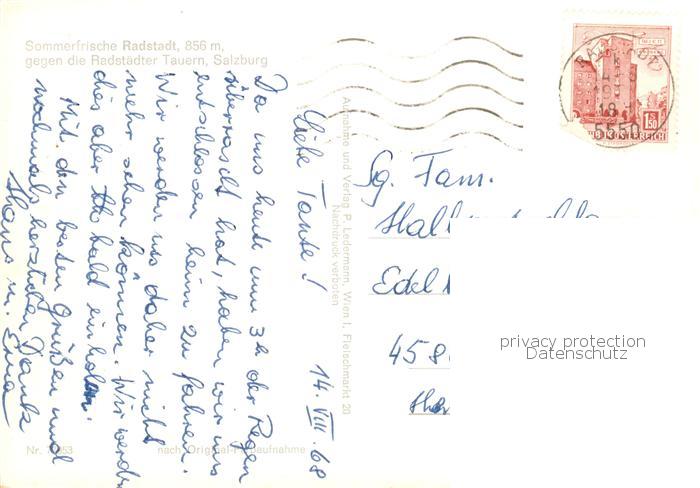 Sommerfrische Radstadt, 856 m,
gegen die Radstädter Tauern, Salzburg
14. VIII. 68
Liebe Tante!
Da uns heute um 3h der Regen
überrascht hat, haben wir uns
entschlossen heim zu fahren.
Wir werden uns daher nicht
mehr sehen können. Wir werden
dies aber bald einholen.
Mit den besten Grüßen und
nochmals herzlichen Dank
Hans u. Erna
Nr.
nach Original-Farbaufnahme
Aufnahme und Verlag P. Ledermann, Wien I, Fleischmarkt 20
Nachdruck verboten
1.50
REPUBLIK ÖSTERREICH
RADSTADT
18
5550
Sg. Fam.
Edel
458
privacy protection
Datenschutz